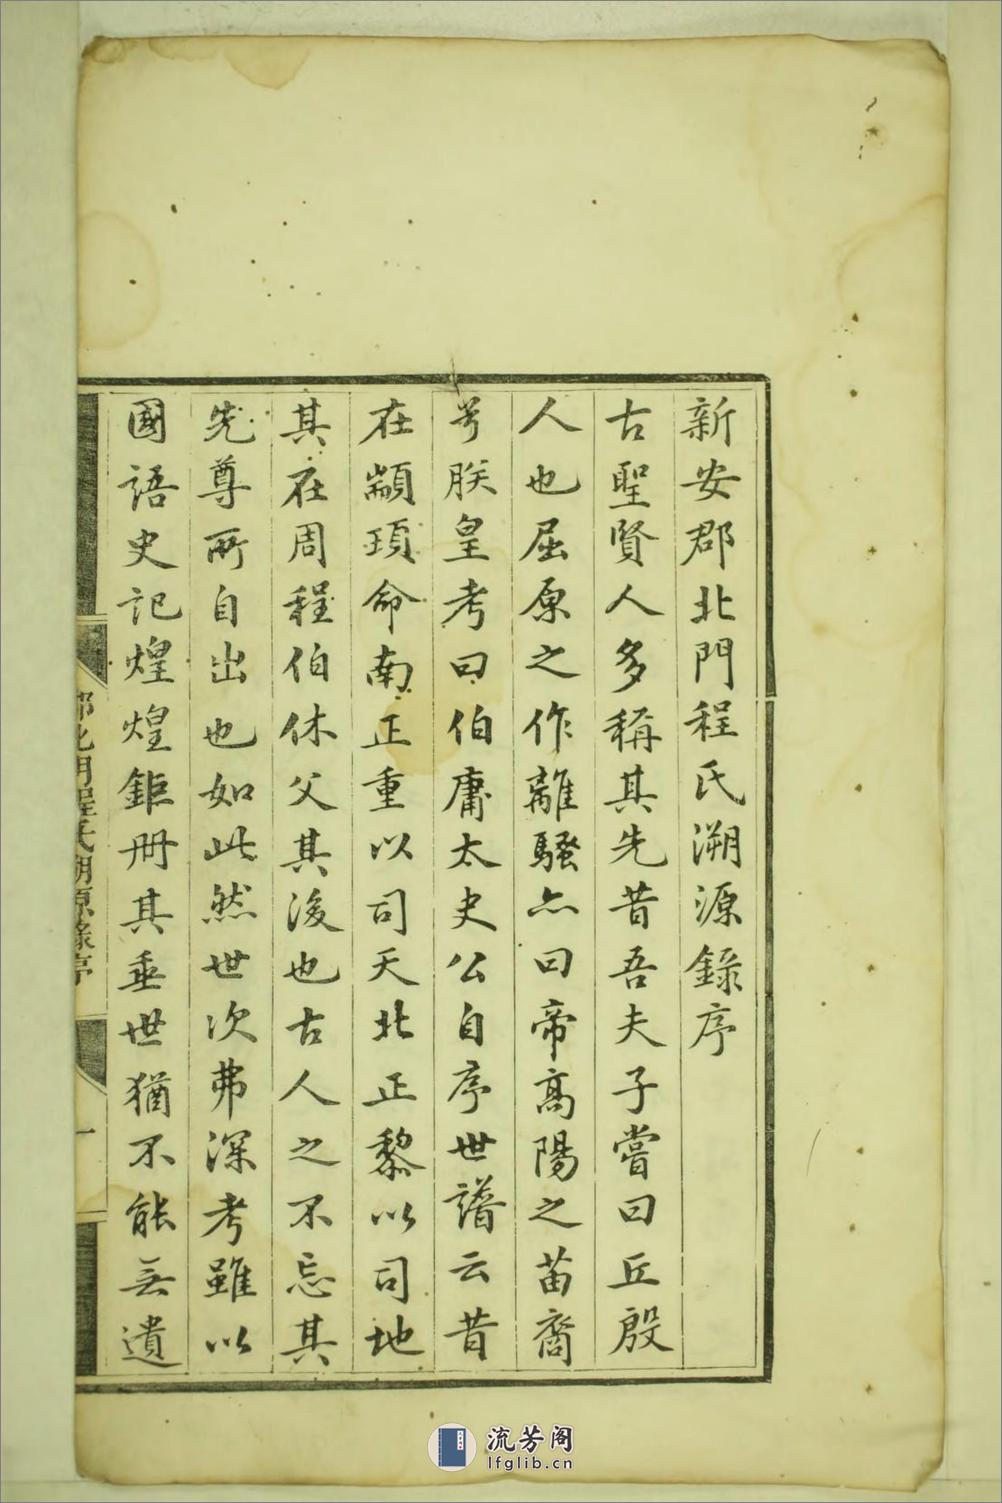 新安郡北門程氏溯源錄序
古聖賢人多稱其先昔吾夫子嘗曰丘殷
人也屈原之作離騷亦曰帝高陽之苗裔
兮朕皇考曰伯庸太史公自序世譜云昔
在顓頊命南正重以司天北正黎以司地
其在周程伯休父其後也古人之不忘其
先尊所自出也如此然世次弗深考雖以
國語史記煌煌鉅冊其垂世猶不能無遺
郡北門程氏溯源錄序
一
流芳阁
lfglib.cn